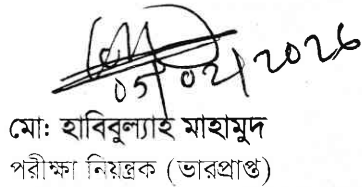 05/02/2026
মো: হাবিবুল্যাহ মাহামুদ
পরীক্ষা নিয়ন্ত্রক (ভারপ্রাপ্ত)